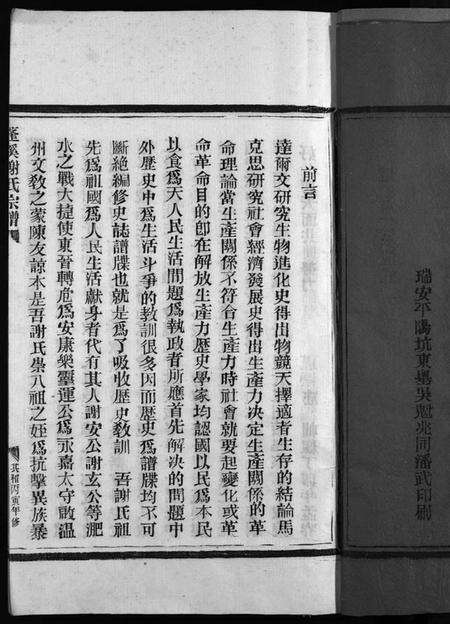 瑞安平陽坑東垟吳魁兆同潘武印刷
前言
達爾文研究生物進化史得出物競天擇適者生存的結論馬
克思研究社會經濟發展史得出生產力决定生產關係的革
命理論當生產關係不符合生產力時社會就要起變化或革
命革命目的卽在解放生產力歷史學家均認國以民爲本民
以食爲天人民生活問題爲執政者所應首先解决的問題中
外歷史中爲生活斗爭的教訓很多因而歷史爲譜牒均不可
斷絶編修史誌譜牒也就是爲了吸收歷史教訓 吾謝氏祖
先爲祖國爲人民生活献身者代有其人謝安公謝玄公等淝
水之戰大捷使東晉轉危爲安康樂靈運公爲永嘉太守敢溫
州文教之蒙陳友諒本是吾謝氏崇八祖之姪爲抗擊異族暴
謝氏宗譜
丙寅年修